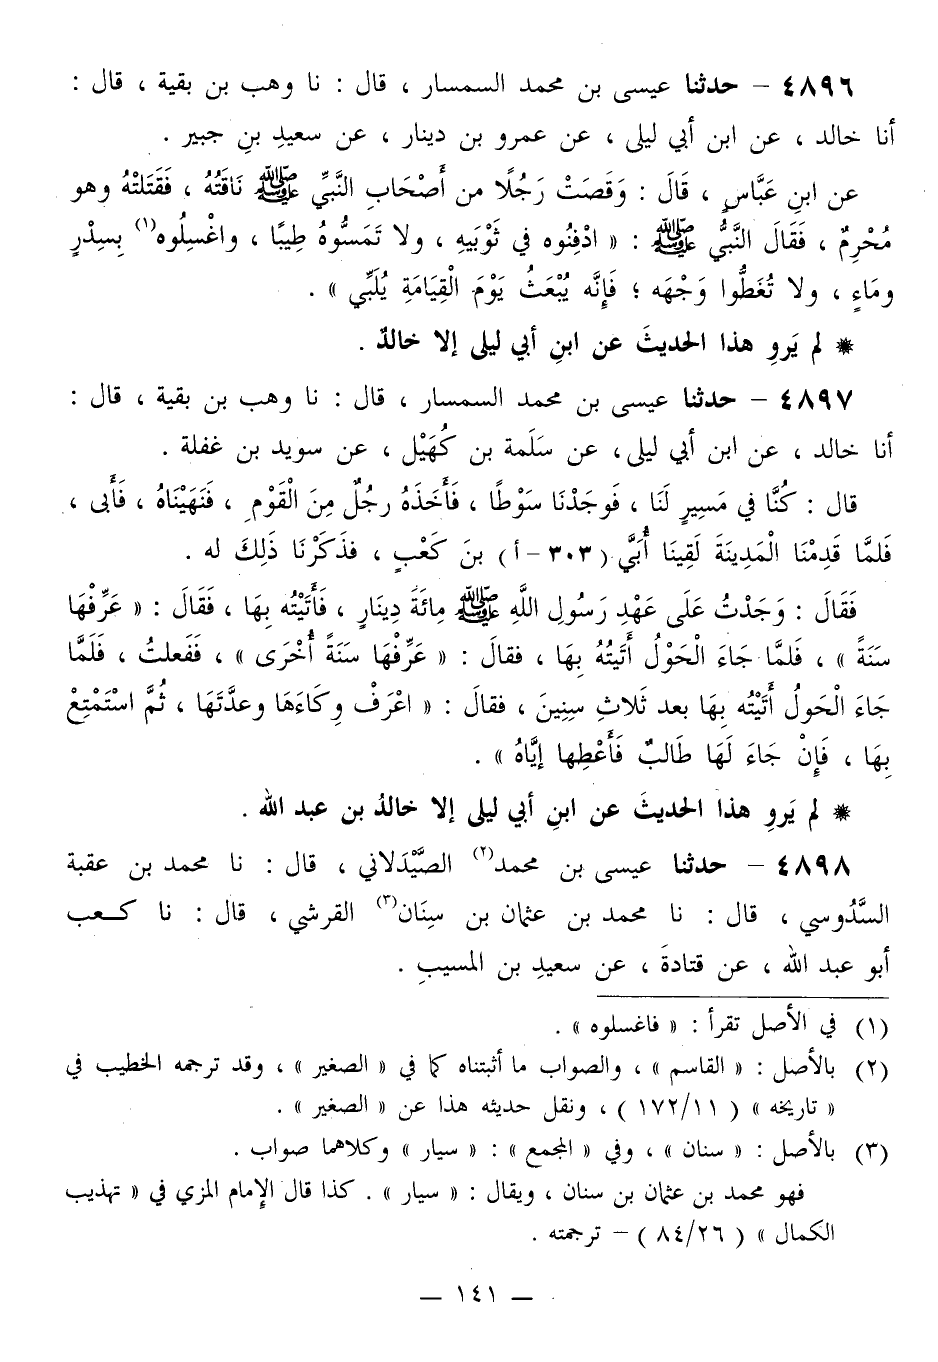 ٤٨٩٦ – حدثنا عيسى بن محمد السمسار ، قال : نا وهب بن بقية ، قال :
أنا خالد ، عن ابن أبي ليلى ، عن عمرو بن دينار ، عن سعيدِ بنِ جبير .
عن ابنِ عَبَّاسٍ ، قَالَ : وَقَصَتْ رَجُلًا من أَصْحَابِ النَّبيِّ ﷺ نَاقَتُهُ ، فَقَتَلتْهُ وهو
مُحْرِمٌ ، فَقَالَ النَّبيُّ ﷺ : « ادْفِنُوه في ثَوْبَيهِ ، ولا تَمَسُّوهُ طِيبًا ، واغْسِلُوه(١) بِسِدْرٍ
ومَاءٍ ، ولا تُغَطُّوا وَجْهَه ؛ فَإِنَّه يُبْعَثُ يَوْمَ الْقِيَامَةِ يُلَبِّي » .
* لم يَروِ هذا الحديثَ عن ابنِ أبي ليلى إلا خالدٌ .
٤٨٩٧ – حدثنا عيسى بن محمد السمسار ، قال : نا وهب بن بقية ، قال :
أنا خالد ، عن ابن أبي ليلى، عن سَلَمة بن كُهَيْل ، عن سويد بن غفلة .
قال : كُنَّا في مَسِيرٍ لَنَا ، فَوجَدْنَا سَوْطًا ، فَأَخَذَهُ رجُلٌ مِنَ الْقَوْمِ ، فَنَهيْنَاهُ ، فَأَبى ،
فَلمَّا قَدِمْنَا الْمَدِينَةَ لَقِينَا أُبَيَّ ( ٣٠٣ – أ ) بنَ كَعْبٍ ، فذَكرْنَا ذَلِكَ له .
فَقَالَ : وَجَدْتُ عَلَى عَهْدِ رَسُولِ اللَّهِ ﷺ مِائَةَ دِينَارٍ ، فَأَتَيْتُه بِهَا ، فَقَالَ : « عَرِّفْهَا
سَنَةً » ، فَلمَّا جَاءَ الْحَوْلُ أَتَيْتُهُ بِهَا ، فقالَ : « عَرِّفْهَا سَنَةً أُخْرَى » ، فَفَعلتُ ، فَلَمَّا
جَاءَ الْحَولُ أَتَيْتُه بِهَا بعد ثَلاثِ سِنِينَ ، فقالَ : « اعْرَفْ وِكَاءَهَا وعدَّتَهَا ، ثُمَّ اسْتَمْتِعْ
بِهَا ، فَإِنْ جَاءَ لَهَا طَالبٌ فَأَعْطِها إيَّاهُ » .
* لم يَروِ هذا الحديثَ عن ابنِ أبي ليلى إلا خالدُ بن عبد الله .
٤٨٩٨ – حدثنا عيسى بن محمد(٢) الصَّيْدَلاني ، قال : نا محمد بن عقبة
السَّدُوسي ، قال : نا محمد بن عثمان بن سِنَان(٣) القرشي ، قال : نا كـعب
أبو عبد الله ، عن قتادةَ ، عن سعيدِ بن المسيبِ .
(١) في الأصل تقرأ : « فاغسلوه » .
(٢) بالأصل : « القاسم » ، والصواب ما أثبتناه كما في « الصغير » ، وقد ترجمه الخطيب في
« تاريخه » ( ١١/١٧٢ ) ، ونقل حديثه هذا عن « الصغير » .
(٣) بالأصل : « سنان » ، وفي « المجمع » : « سيار » وكلاهما صواب .
فهو محمد بن عثمان بن سنان ، ويقال : « سيار » . كذا قال الإمام المزي في « تهذيب
الكمال » ( ٢٦/٨٤ ) – ترجمته .
– ١٤١ –